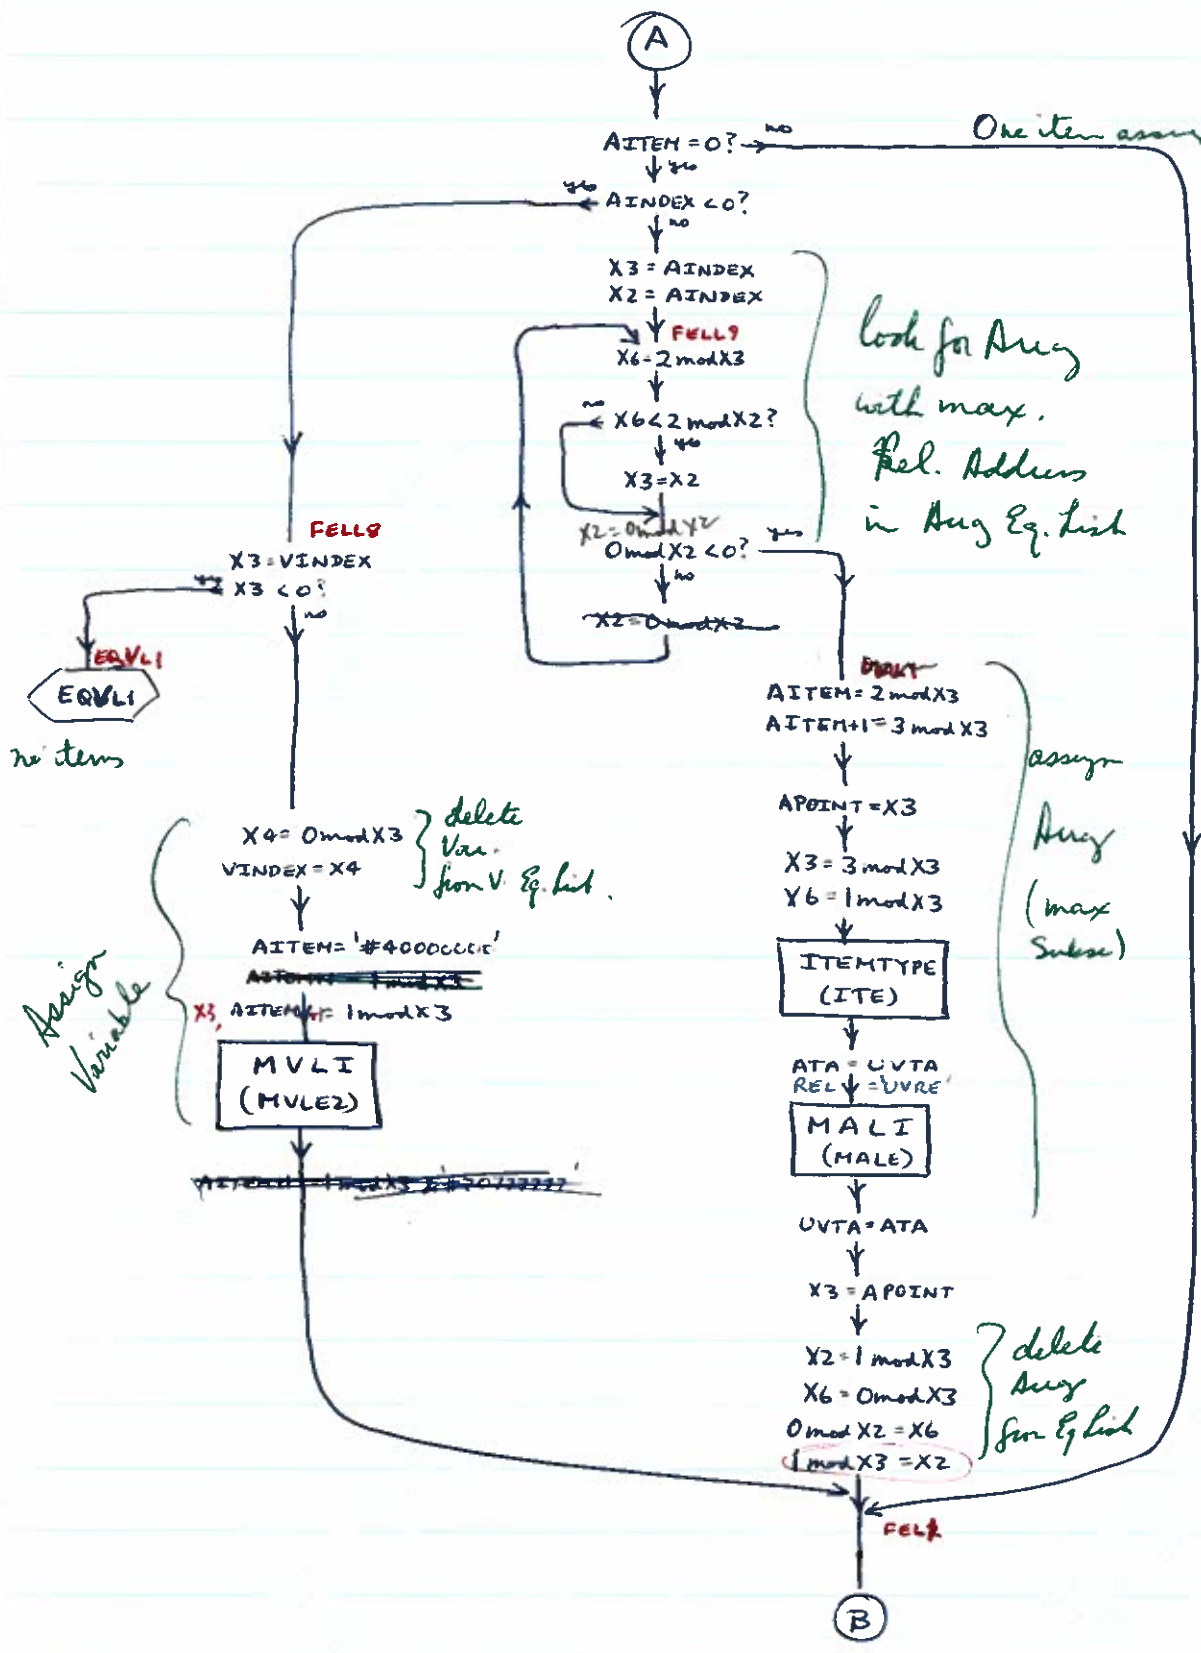 A
AITEM = 0? no One item assig
yes
yes AINDEX < 0?
no
X3 = AINDEX
X2 = AINDEX
FELL9
X6 = 2modX3
no X6 < 2modX2?
yes
X3 = X2
X2 = 0modX2
0modX2 < 0? yes
no
X2 = 0modX2
look for Aug
with max.
Rel. Address
in Aug Eq. List
FELL8
X3 = VINDEX
yes X3 < 0?
no
EQVL1
EQVL1
no items
X4 = 0modX3
VINDEX = X4
delete
Var.
from V. Eq. List.
AITEM = '#40000000'
X3, AITEM+1 = 1modX3
MVLI
(MVLE2)
Assign
Variable
AITEM = 2modX3
AITEM+1 = 3modX3
APOINT = X3
X3 = 3modX3
X6 = 1modX3
ITEMTYPE
(ITE)
ATA = UVTA
REL = 'UVRE'
MALI
(MALE)
UVTA = ATA
assign
Aug
(max
X3 = APOINT
X2 = 1modX3
X6 = 0modX3
0modX2 = X6
1modX3 = X2
delete
Aug
from Eq List
B